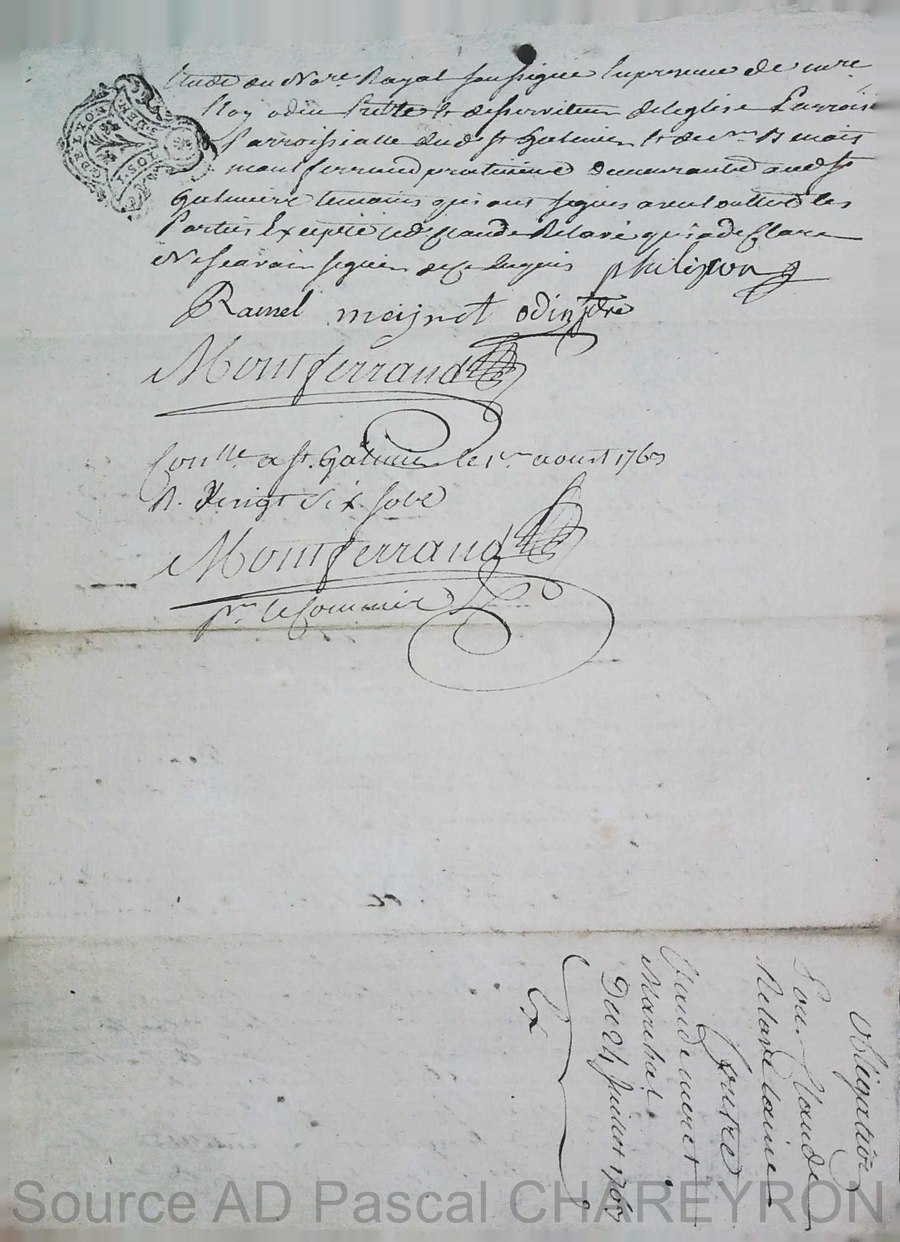 Etude du No.re Royal soussigné En presence de m.re
Eloy odin Prêtre & desserviteur de l'eglise Parrois
Parroissialle dud. St Galmier & de s.r Benoit
montferrand praticien demeurants aud. St
Galmier temoins qui ont signés avec lesd. les
Parties Excepté led. Claude Relave qui a declaré
Ne scavoir signer de ce Enquis philipon
Ravel meijnet odin ptre
Montferrand
Con.lle a St. Galmier le 1.er aoust 1767
R. vingt six sols
Montferrand
p.r le Commis
Obligatiõn
Pour Claude
Relave Laine
Contre
Claude
Marchal
Du 24 Juillet 1767
Ex
Source AD Pascal CHAREYRON